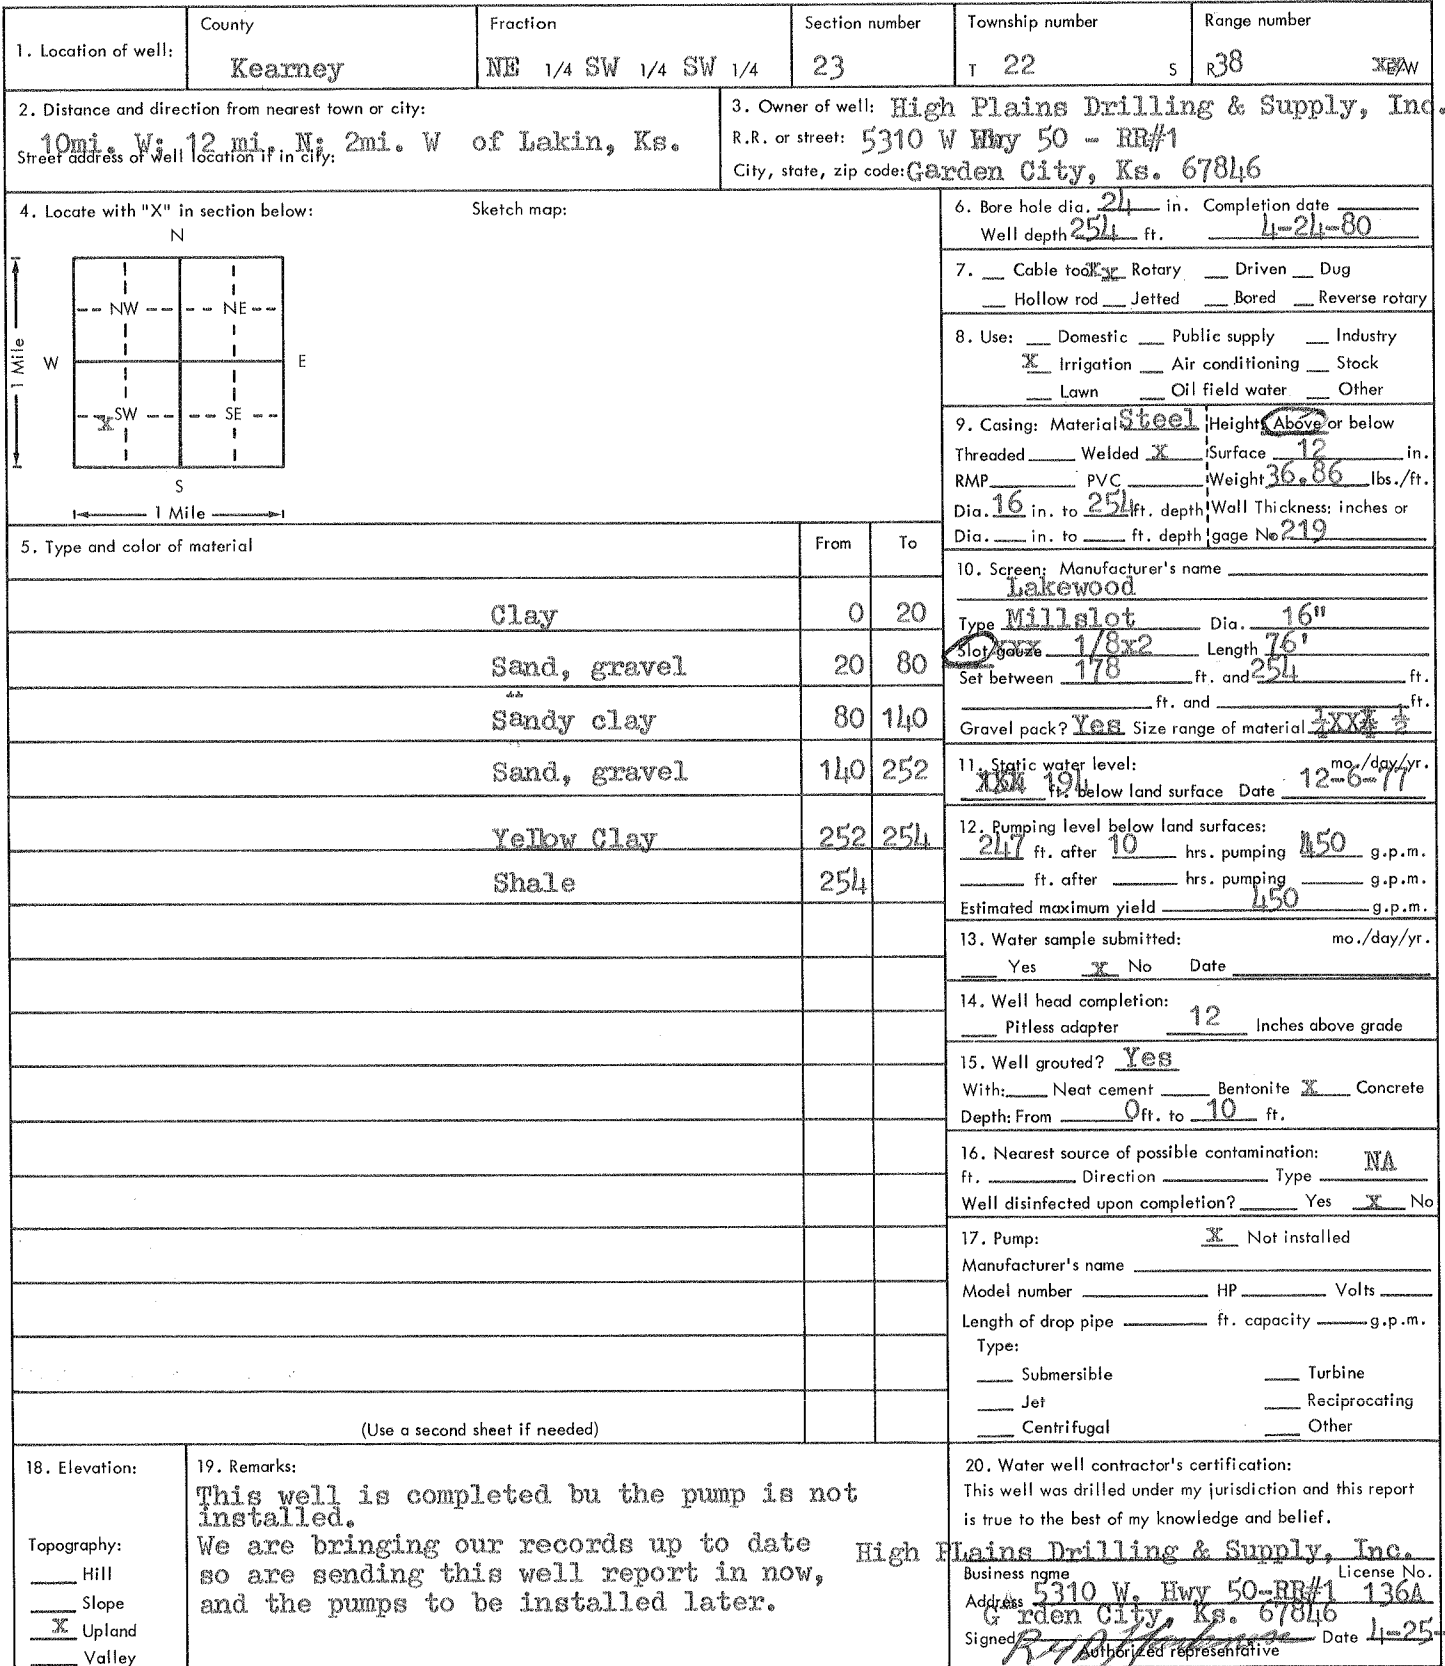 County Fraction Section number Township number Range number
1. Location of well: Kearney NE 1/4 SW 1/4 SW 1/4 23 T 22 S R38 E/W
2. Distance and direction from nearest town or city:
10mi. W; 12 mi. N; 2mi. W of Lakin, Ks.
Street address of well location if in city:
3. Owner of well: High Plains Drilling & Supply, Inc.
R.R. or street: 5310 W Hwy 50 - RR#1
City, state, zip code: Garden City, Ks. 67846
4. Locate with "X" in section below: Sketch map:
N
NW NE
W E
1 Mile
X SW SE
S
1 Mile
5. Type and color of material From To
Clay 0 20
Sand, gravel 20 80
Sandy clay 80 140
Sand, gravel 140 252
Yellow Clay 252 254
Shale 254
(Use a second sheet if needed)
6. Bore hole dia. 24 in. Completion date
Well depth 254 ft. 4-24-80
7. Cable tool X Rotary Driven Dug
Hollow rod Jetted Bored Reverse rotary
8. Use: Domestic Public supply Industry
X Irrigation Air conditioning Stock
Lawn Oil field water Other
9. Casing: Material Steel Height: Above or below
Threaded Welded X Surface 12 in.
RMP PVC Weight 36.86 lbs./ft.
Dia. 16 in. to 254 ft. depth Wall Thickness: inches or
Dia. in. to ft. depth gage No 219
10. Screen: Manufacturer's name
Lakewood
Type Millslot Dia. 16"
Slot/gauze 1/8x2 Length 76'
Set between 178 ft. and 254 ft.
ft. and ft.
Gravel pack? Yes Size range of material 1/2
11. Static water level: mo./day/yr.
194 ft. below land surface Date 12-6-77
12. Pumping level below land surfaces:
247 ft. after 10 hrs. pumping 450 g.p.m.
ft. after hrs. pumping g.p.m.
Estimated maximum yield 450 g.p.m.
13. Water sample submitted: mo./day/yr.
Yes X No Date
14. Well head completion:
Pitless adapter 12 Inches above grade
15. Well grouted? Yes
With: Neat cement Bentonite X Concrete
Depth: From 0 ft. to 10 ft.
16. Nearest source of possible contamination: NA
ft. Direction Type
Well disinfected upon completion? Yes X No
17. Pump: X Not installed
Manufacturer's name
Model number HP Volts
Length of drop pipe ft. capacity g.p.m.
Type:
Submersible Turbine
Jet Reciprocating
Centrifugal Other
18. Elevation:
Topography:
Hill
Slope
X Upland
Valley
19. Remarks:
This well is completed bu the pump is not
installed.
We are bringing our records up to date
so are sending this well report in now,
and the pumps to be installed later.
20. Water well contractor's certification:
This well was drilled under my jurisdiction and this report
is true to the best of my knowledge and belief.
High PLains Drilling & Supply, Inc.
Business name License No.
Address 5310 W. Hwy 50-RR#1 136A
G rden City, Ks. 67846
Signed Date 4-25-
Authorized representative